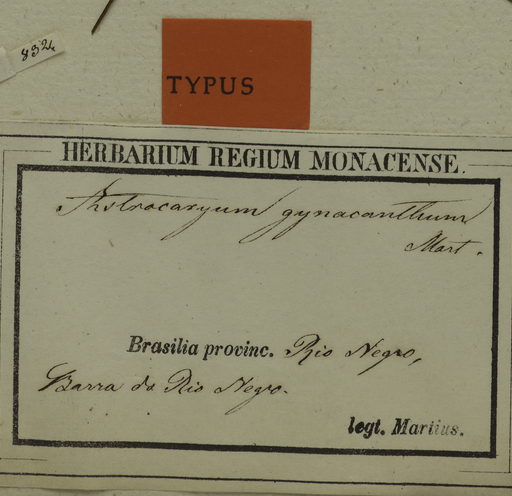 832.
TYPUS
HERBARIUM REGIUM MONACENSE.
Astrocaryum gynacanthum
Mart.
Brasilia provinc. Rio Negro,
Barra do Rio Negro.
legt. Martius.